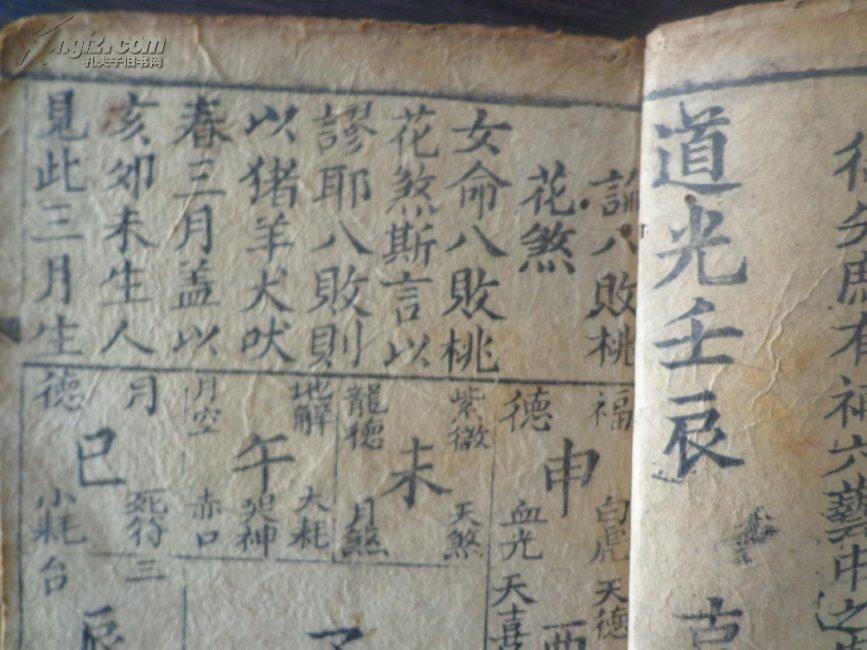 道光壬辰
古
論八敗桃
花煞
女命八敗桃
花煞斯言以
謬耶八敗則
以猪羊犬吠
春三月盖以
亥卯未生人
見此三月生
福德
申
白虎 天德
血光 天喜
酉
紫微
龍德
未
天煞
月煞
地解
月空
午
大耗
哭神
赤口
月德
巳
死符 三
小耗 台
辰
kongfz.com
孔夫子旧书网